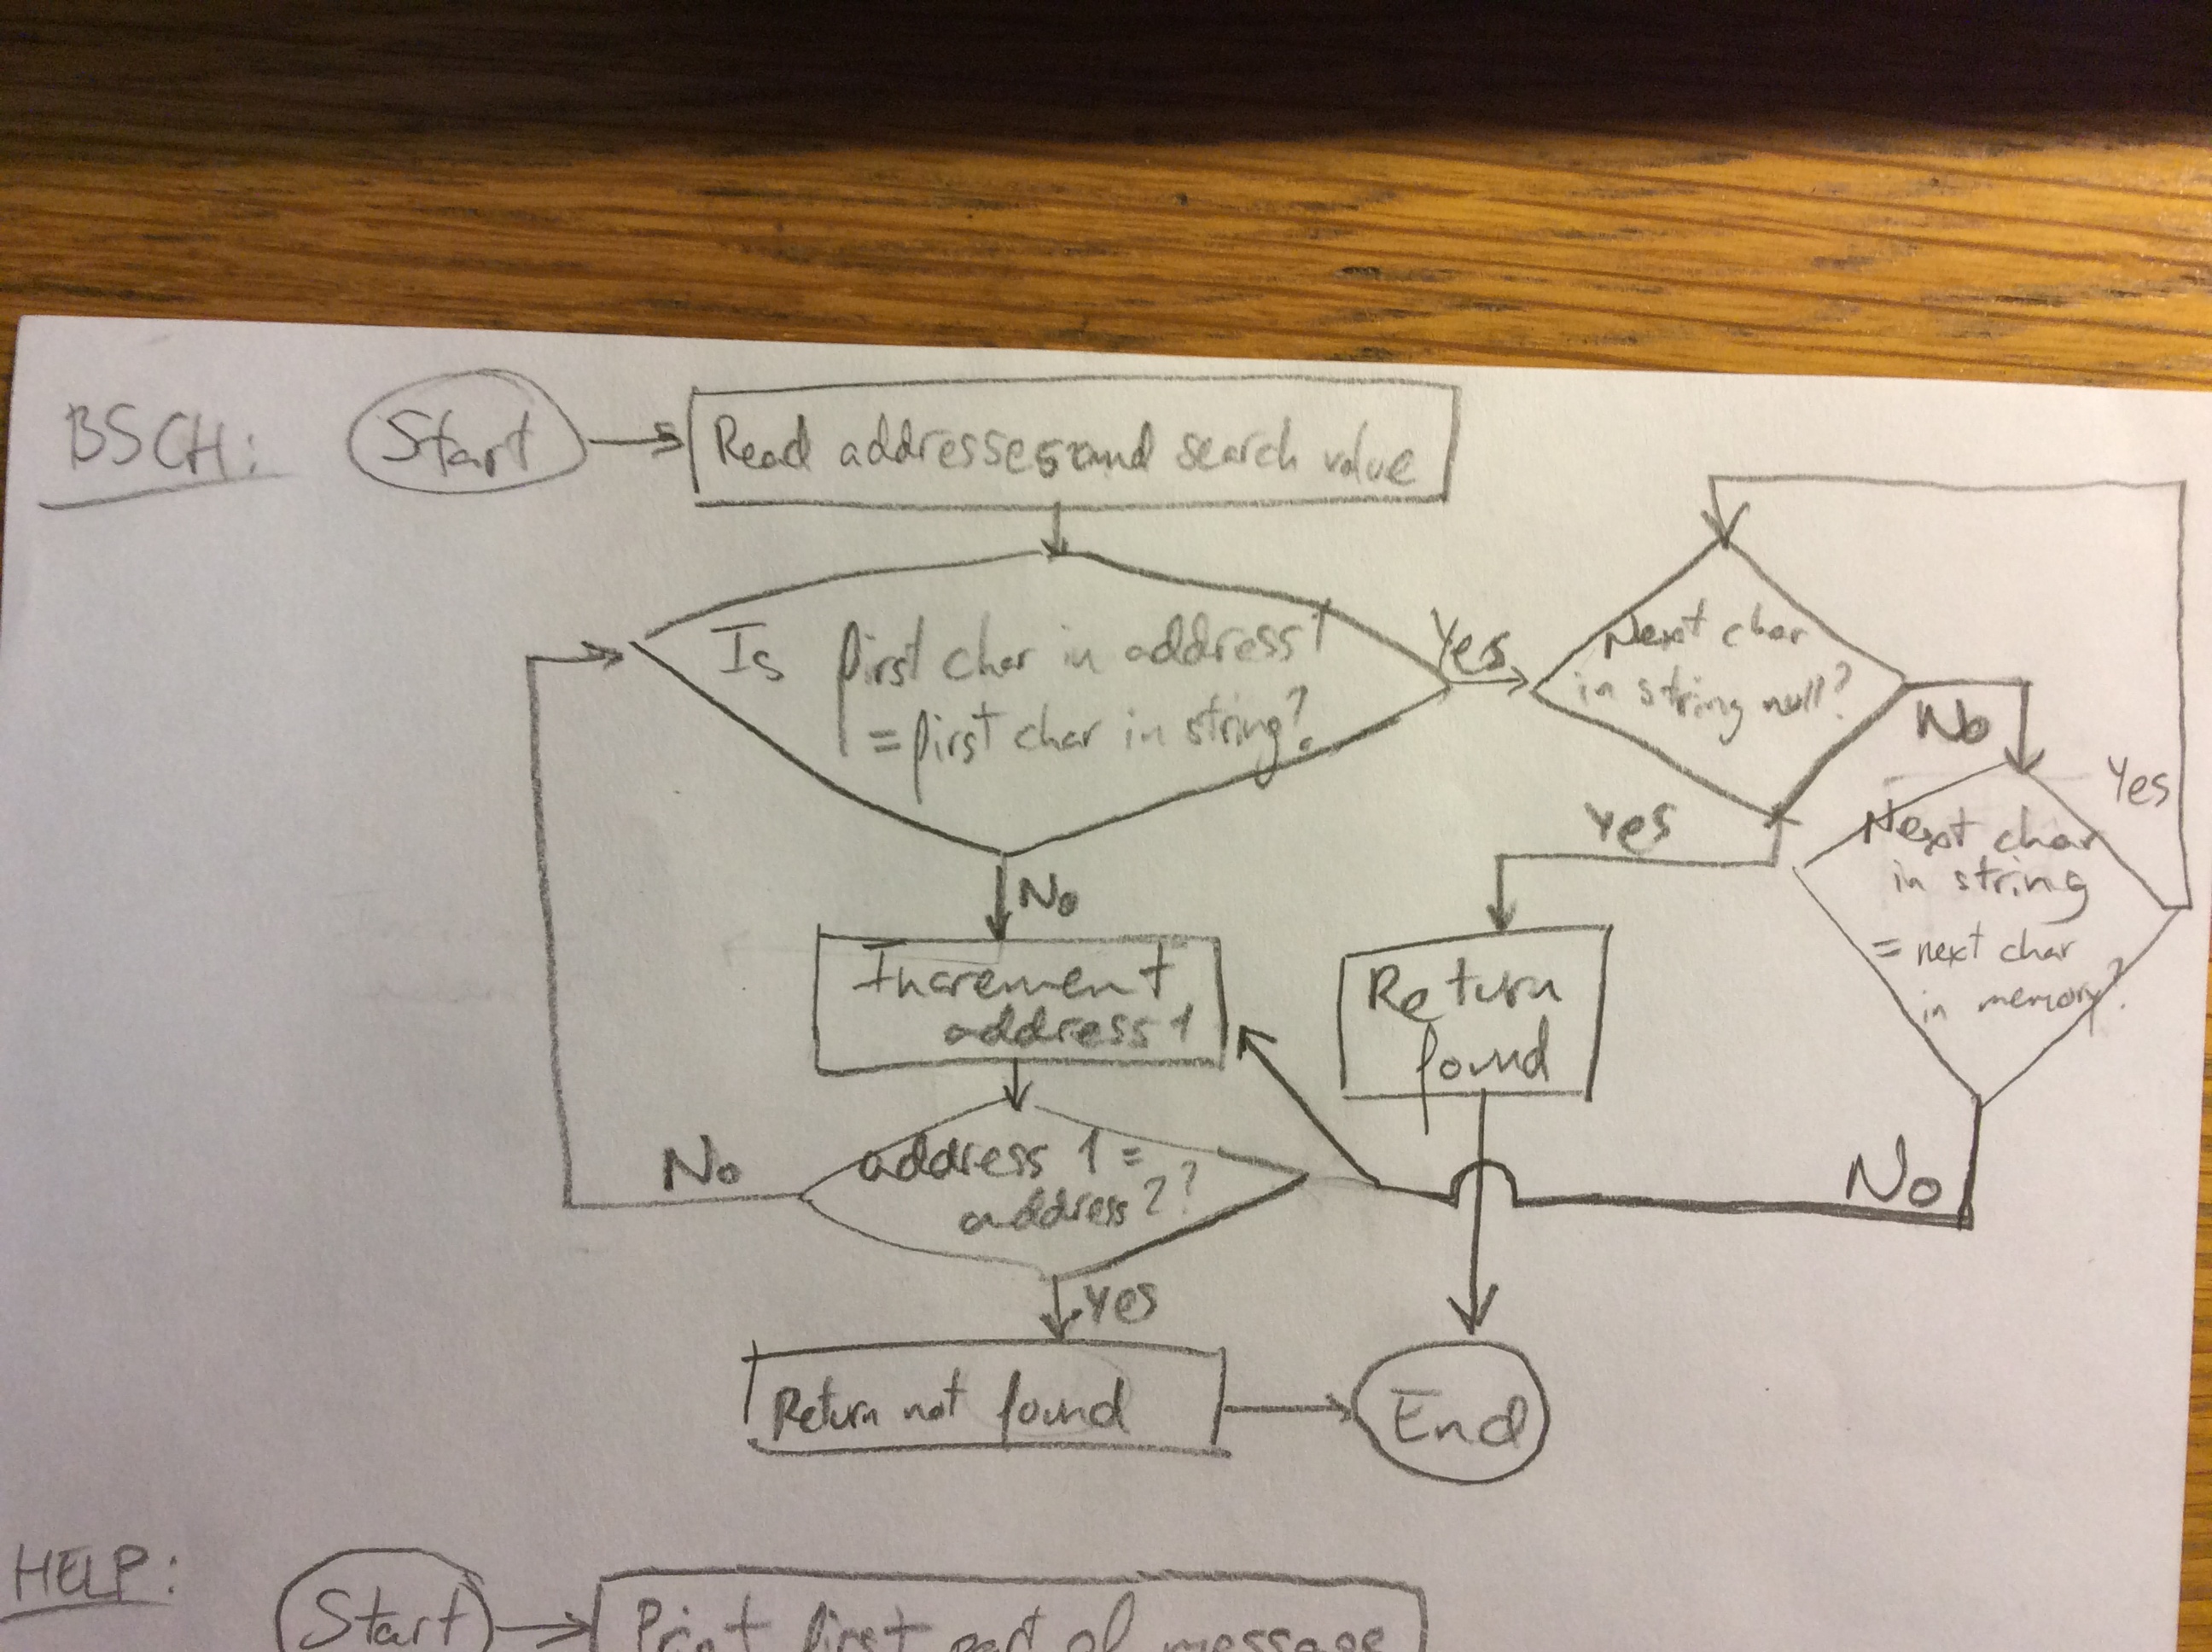 BSCH:
Start
Read addresses and search value
Is first char in address 1
= first char in string?
Yes
Next char
in string null?
No
Yes
Next char
in string
= next char
in memory?
Yes
No
No
Increment
address 1
Return
found
address 1 =
address 2?
No
Yes
Return not found
End
HELP:
Start
Print first part of message